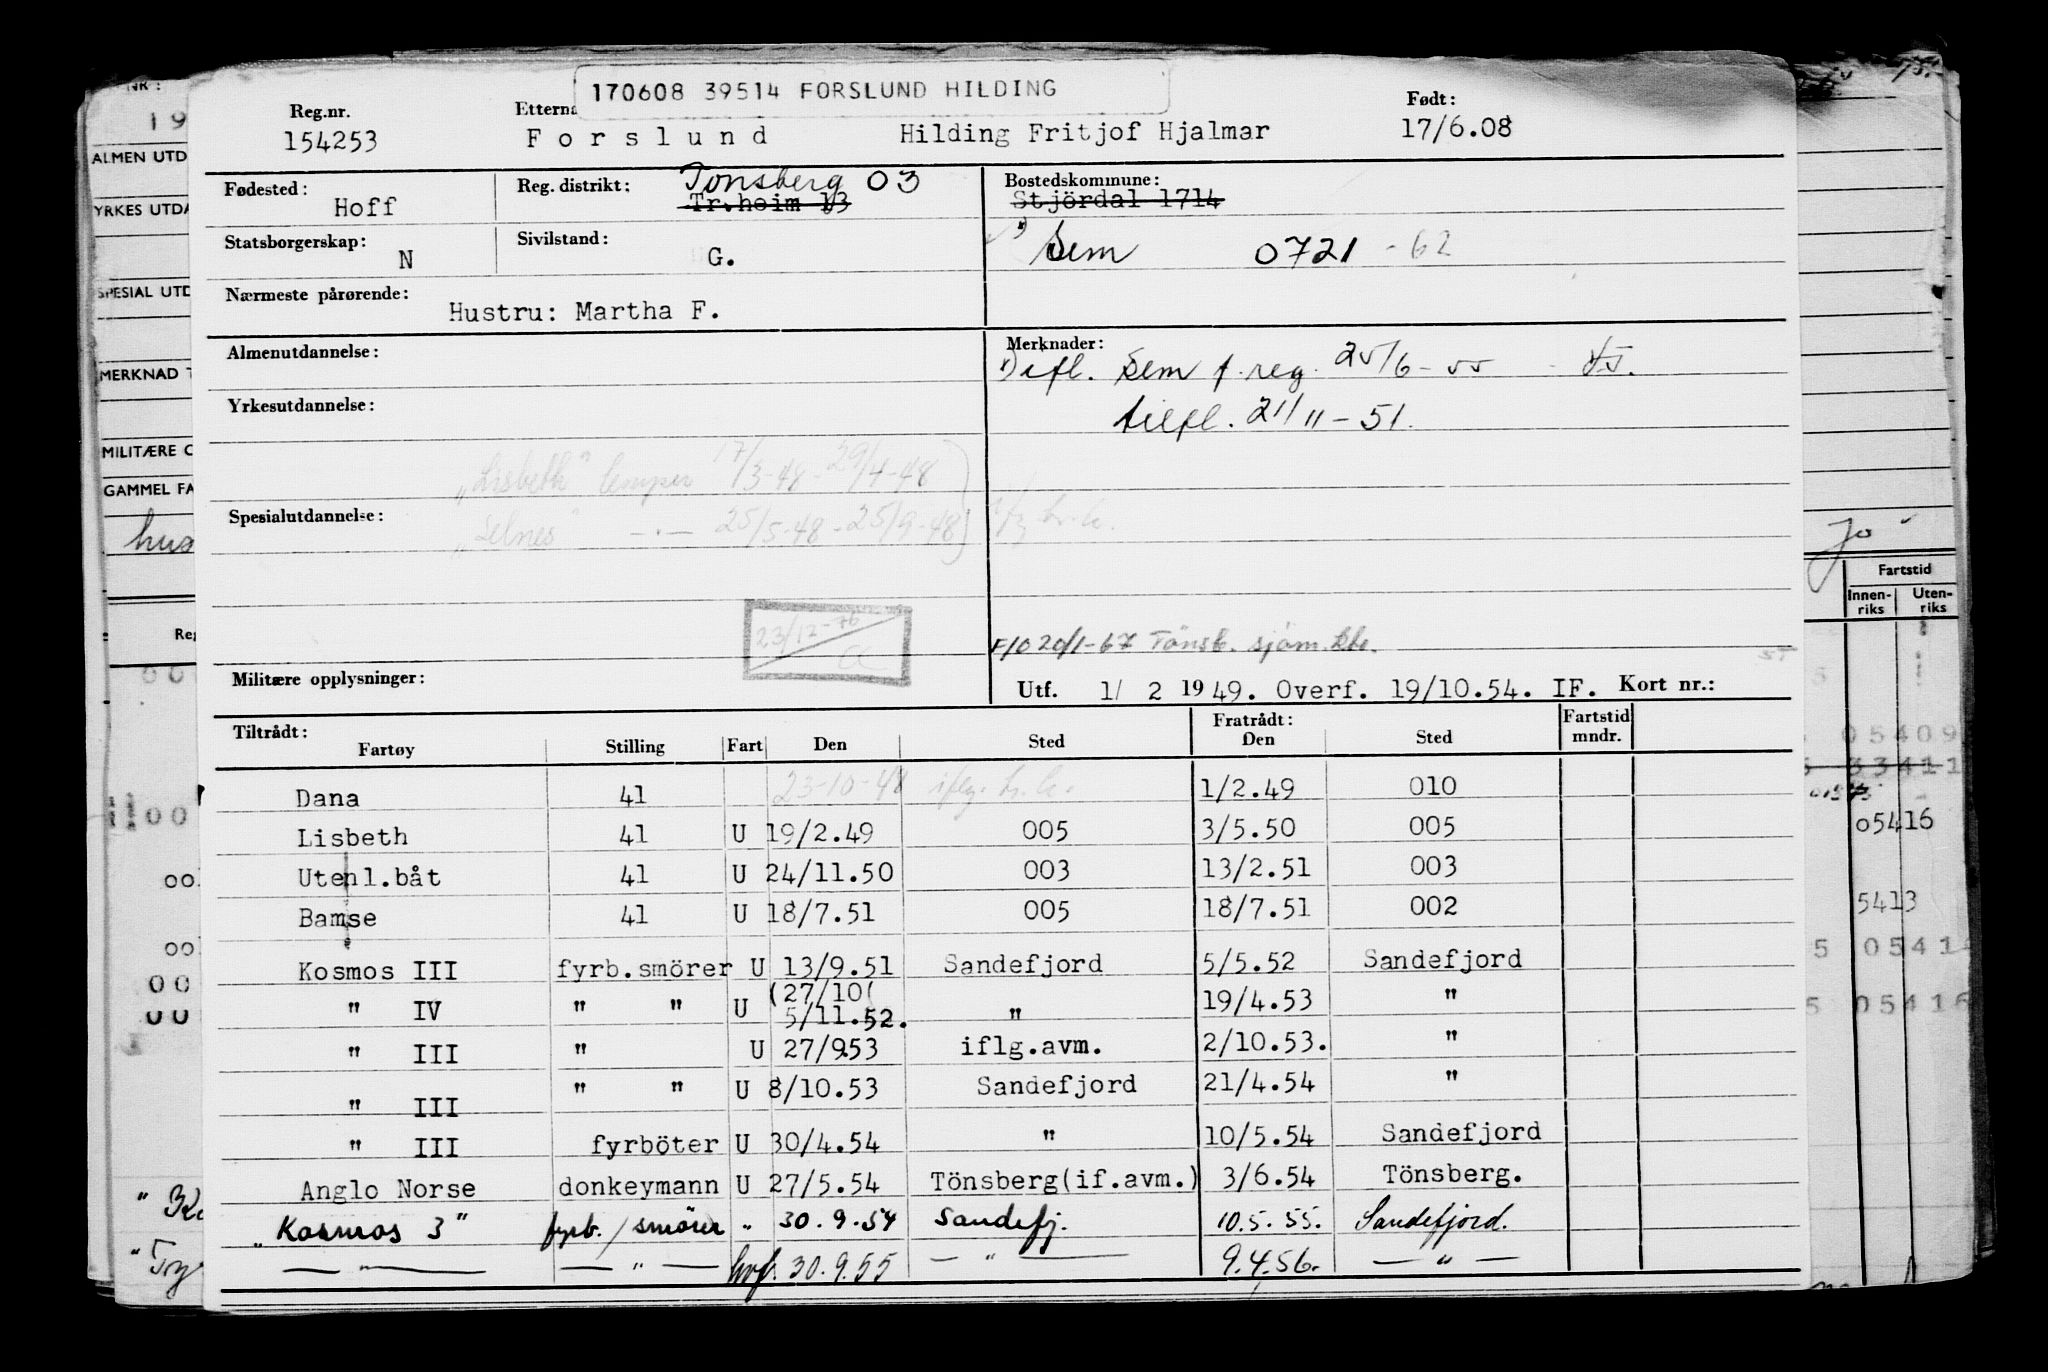 170608 39514 FORSLUND HILDING
Reg.nr. Etterna Født:
154253 Forslund Hilding Fritjof Hjalmar 17/6.08
Fødested: Hoff Reg. distrikt: Tönsberg 03 Bostedskommune:
Tr.heim 13 Stjördal 1714
Statsborgerskap: N Sivilstand: G. Sem 0721 - 62
Nærmeste pårørende: Hustru: Martha F.
Almenutdannelse: Merknader:
Sem f. reg. 25/6-55
Yrkesutdannelse:
tilfl. 21/11-51.
"Lisbeth" lemper 17/3-48 - 29/4-48
Spesialutdannelse: "Selnes" —·— 25/5-48 - 25/9-48
23/12-76
F/O 20/1-67 Tönsb. sjöm.
Militære opplysninger: Utf. 1/ 2 1949. Overf. 19/10.54. IF. Kort nr.:
Tiltrådt: Fratrådt: Fartstid mndr.
Fartøy Stilling Fart Den Sted Den Sted
Dana 41 23-10-48 1/2.49 010
Lisbeth 41 U 19/2.49 005 3/5.50 005
Utenl.båt 41 U 24/11.50 003 13/2.51 003
Bamse 41 U 18/7.51 005 18/7.51 002
Kosmos III fyrb.smörer U 13/9.51 Sandefjord 5/5.52 Sandefjord
" IV " " U (27/10( 5/11.52. " 19/4.53 "
" III " U 27/953 iflg.avm. 2/10.53. "
" III " " U 8/10.53 Sandefjord 21/4.54 "
" III fyrböter U 30/4.54 " 10/5.54 Sandefjord
Anglo Norse donkeymann U 27/5.54 Tönsberg(if.avm.) 3/6.54 Tönsberg.
"Kosmos 3" fyrb./smörer " 30.9.54 Sandefj. 10.5.55. Sandefjord.
— " — — " — hvf. 30.9.55 — " — 9.4.56. — " —
NR:
19
ALMEN UTD
YRKES UTDA
SPESIAL UTD
MERKNAD T
MILITÆRE O
GAMMEL FA
hus
Reg
Fartstid
Innen-riks Uten-riks
05409
33411
05416
5413
5 05414
5 05416